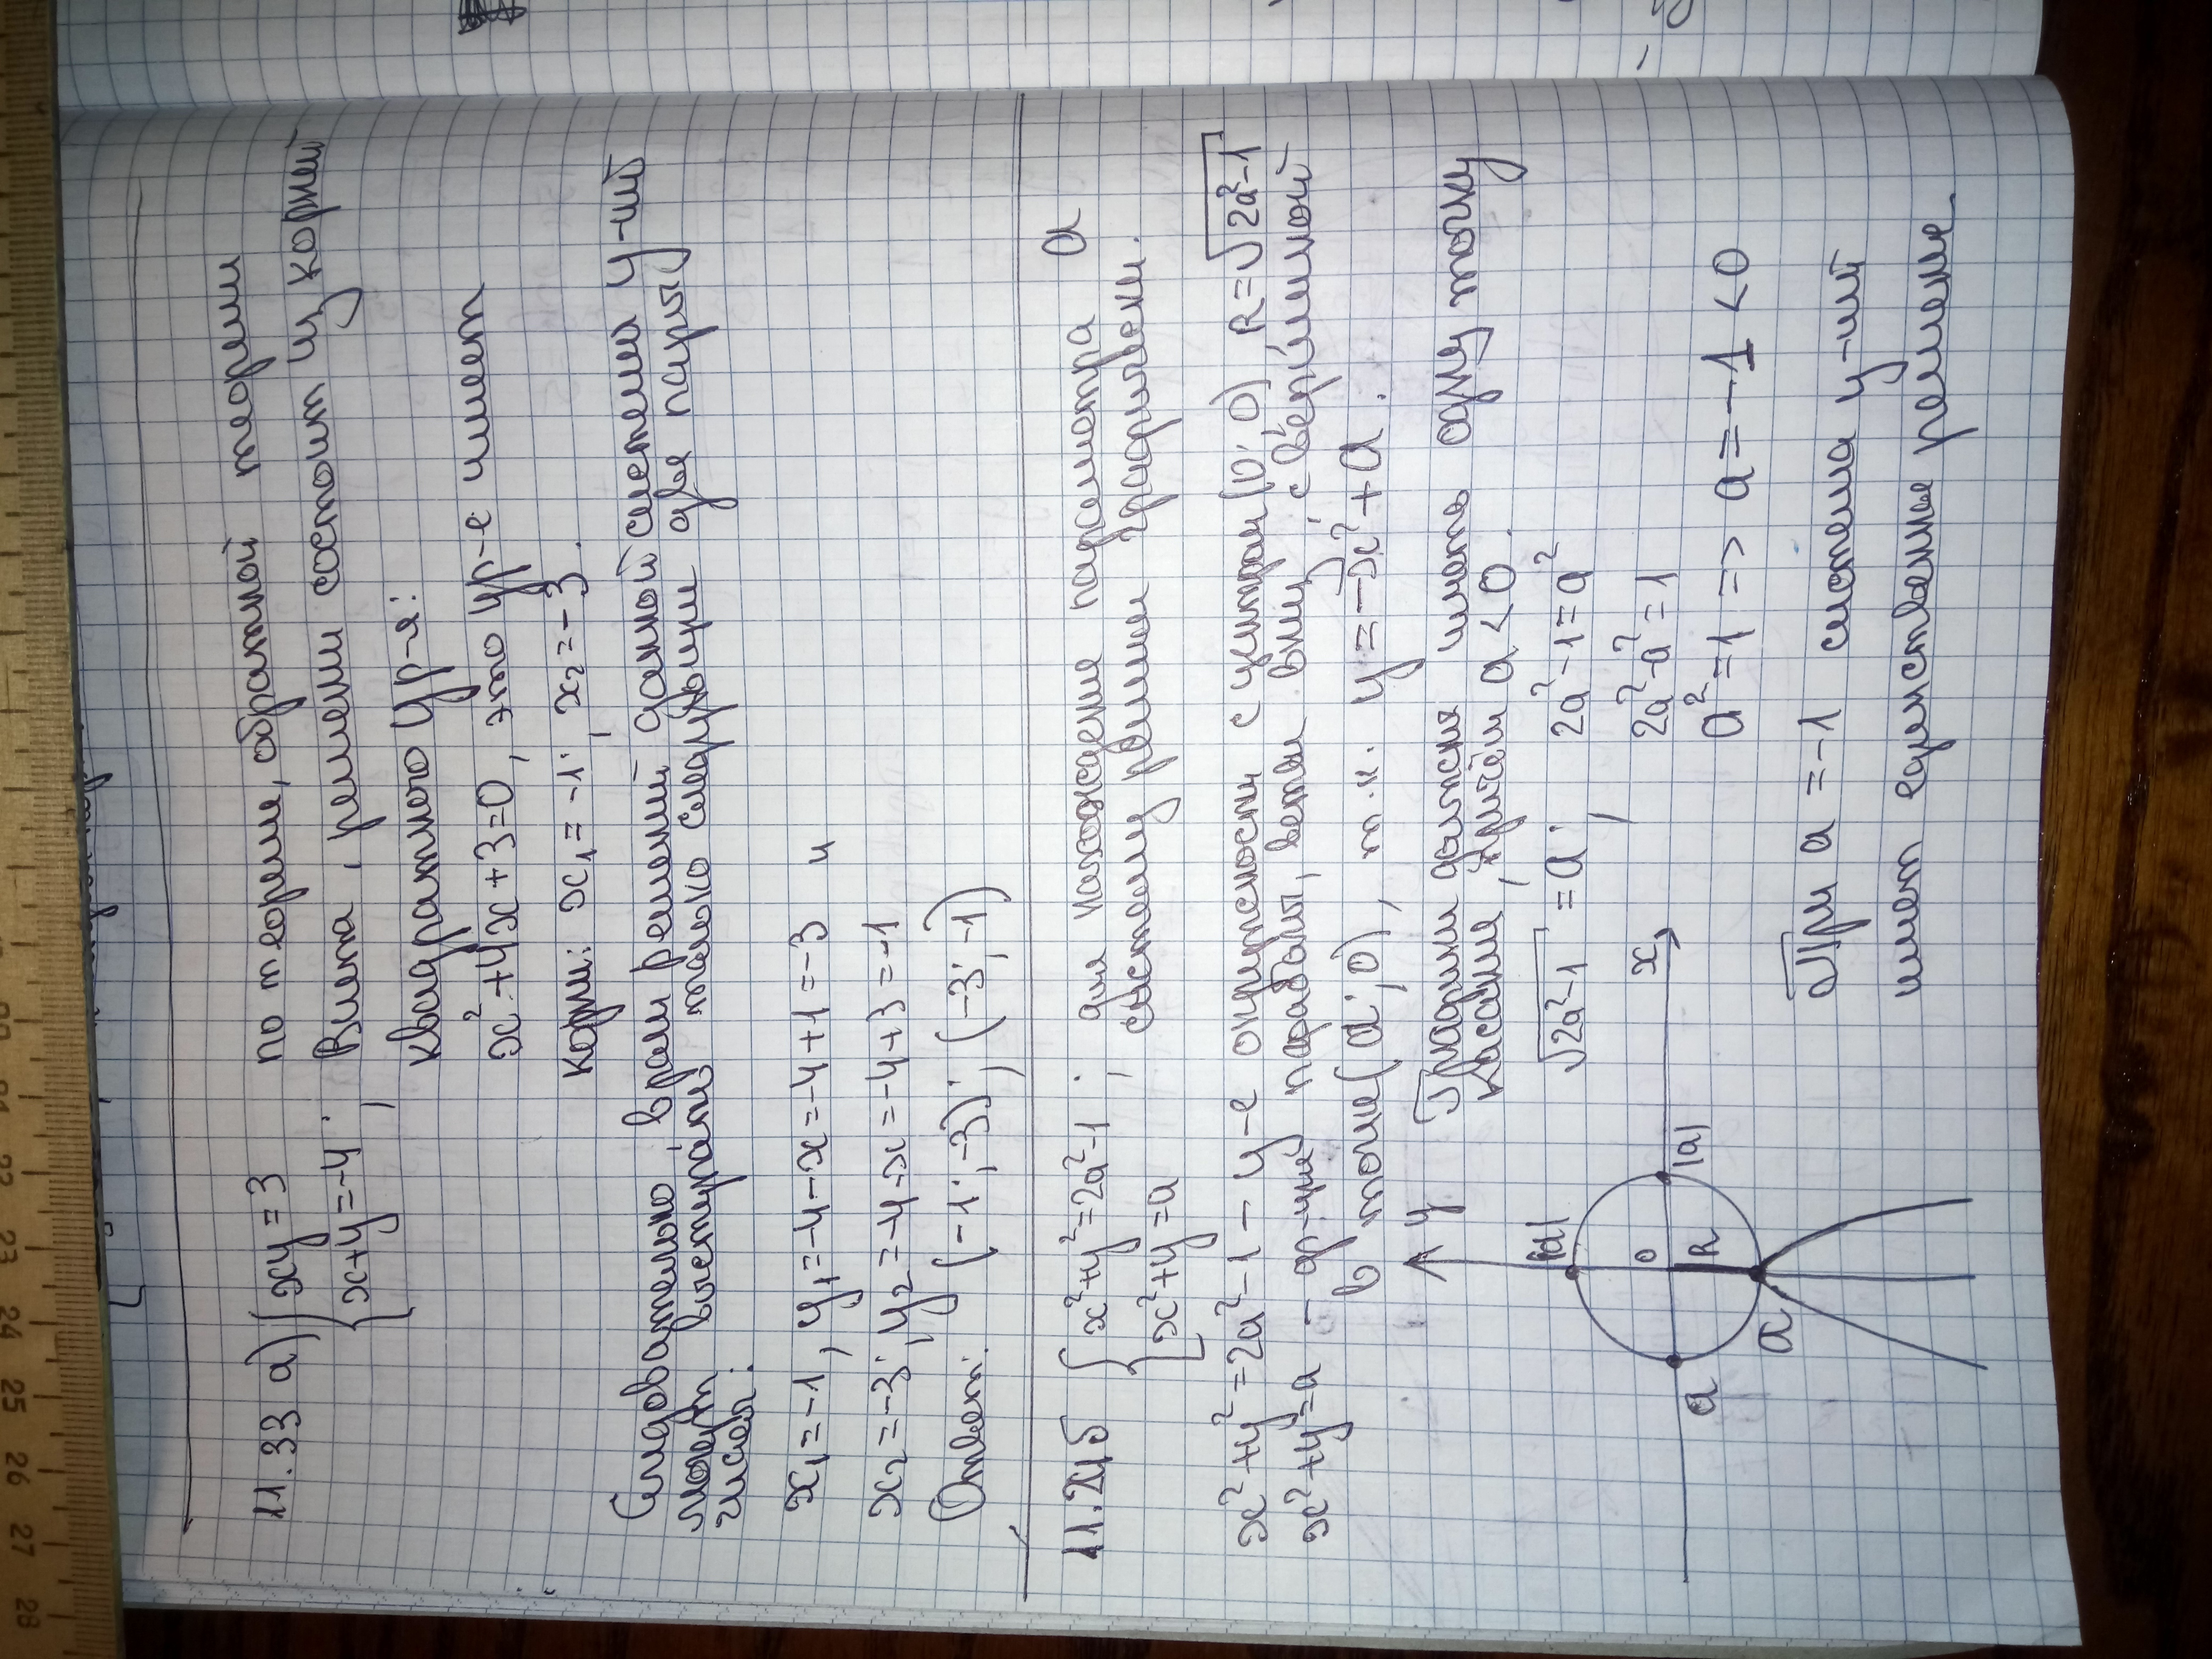 11.33 а) { xy = 3
x+y = -4 ;
по теореме, обратной теореме
Виета, решени состоит из корней
квадратного ур-я:
x²+4x+3=0, это ур-е имеет
корни: x₁ = -1; x₂ = -3.
Следовательно, в роли решений данной системы у-ний
могут выступать только следующие две пары
чисел:
x₁ = -1, y₁ = -4-x = -4+1 = -3 и
x₂ = -3; y₂ = -4-x = -4+3 = -1
Ответ: (-1; -3); (-3; -1)
11.24б { x²+y²=2a²-1 ; для нахождение параметра a
x²+y=a систему решим графически.
x²+y²=2a²-1 - у-е окружности с центром (0; 0) R=√2a²-1
x²+y=a - ф-ция параболы, ветви вниз, с вершиной
в точке (a; 0), т.к. y = -x²+a.
Графики должны иметь одну точку
касания, причём a<0.
√2a²-1 = a; 2a²-1=a²
2a²-a²=1
a²=1 => a=-1 <0
y
|a|
0
R
x
|a|
a
a
При a = -1 система у-ний
имеет единственные решение.
20
21
22
23
24
25
26
27
28